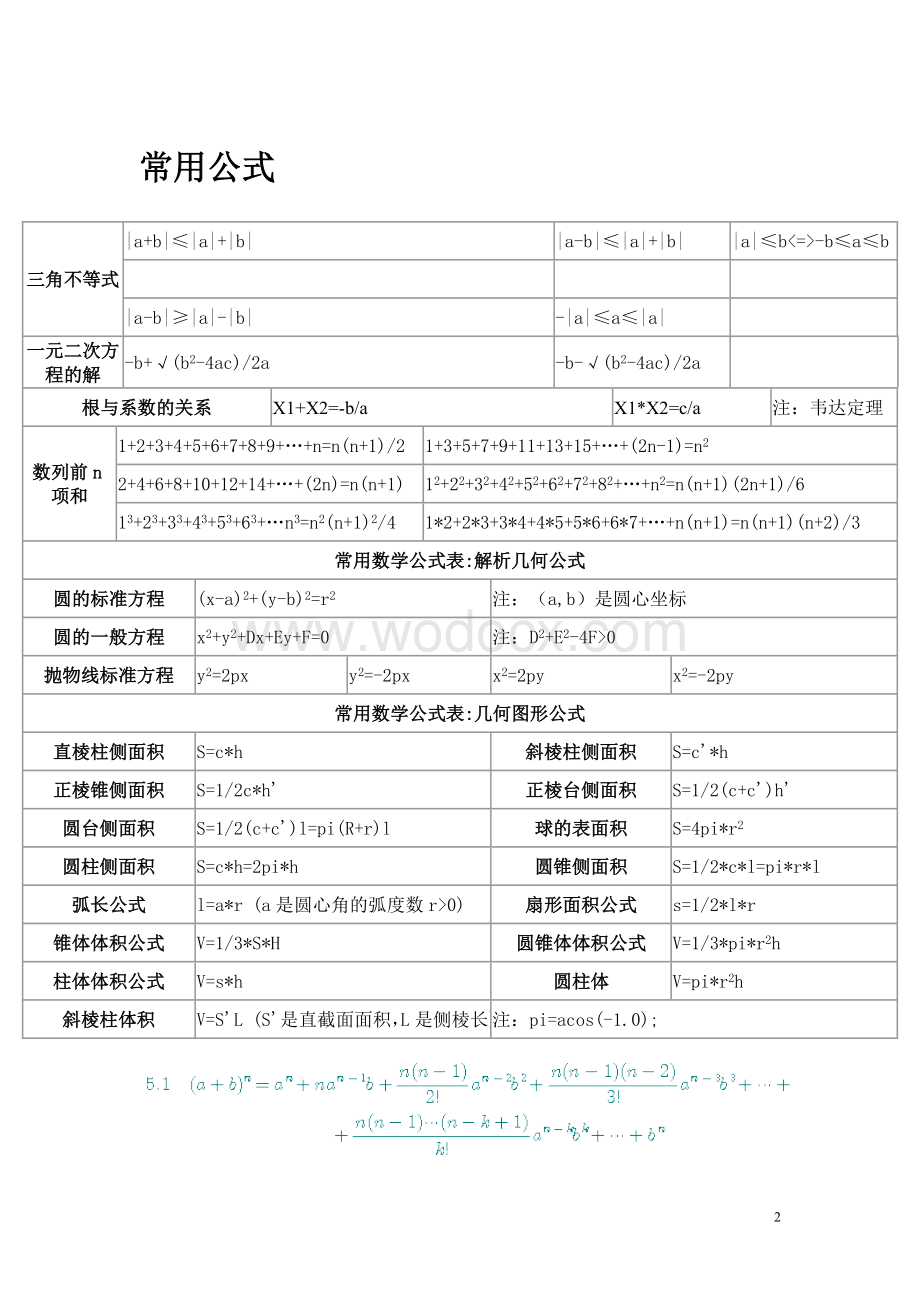 常用公式
三角不等式 |a+b|≤|a|+|b| |a-b|≤|a|+|b| |a|≤b<=>-b≤a≤b
|a-b|≥|a|-|b| -|a|≤a≤|a|
一元二次方程的解 -b+√(b²-4ac)/2a -b-√(b²-4ac)/2a
根与系数的关系 X1+X2=-b/a X1*X2=c/a 注：韦达定理
数列前n项和 1+2+3+4+5+6+7+8+9+…+n=n(n+1)/2 1+3+5+7+9+11+13+15+…+(2n-1)=n²
2+4+6+8+10+12+14+…+(2n)=n(n+1) 1²+2²+3²+4²+5²+6²+7²+8²+…+n²=n(n+1)(2n+1)/6
1³+2³+3³+4³+5³+6³+…n³=n²(n+1)²/4 1*2+2*3+3*4+4*5+5*6+6*7+…+n(n+1)=n(n+1)(n+2)/3
常用数学公式表:解析几何公式
圆的标准方程 (x-a)²+(y-b)²=r² 注：（a,b）是圆心坐标
圆的一般方程 x²+y²+Dx+Ey+F=0 注：D²+E²-4F>0
www.wodocx.com
抛物线标准方程 y²=2px y²=-2px x²=2py x²=-2py
常用数学公式表:几何图形公式
直棱柱侧面积 S=c*h 斜棱柱侧面积 S=c'*h
正棱锥侧面积 S=1/2c*h' 正棱台侧面积 S=1/2(c+c')h'
圆台侧面积 S=1/2(c+c')l=pi(R+r)l 球的表面积 S=4pi*r²
圆柱侧面积 S=c*h=2pi*h 圆锥侧面积 S=1/2*c*l=pi*r*l
弧长公式 l=a*r (a是圆心角的弧度数r>0) 扇形面积公式 s=1/2*l*r
锥体体积公式 V=1/3*S*H 圆锥体体积公式 V=1/3*pi*r²h
柱体体积公式 V=s*h 圆柱体 V=pi*r²h
斜棱柱体积 V=S'L (S'是直截面面积，L是侧棱长 注：pi=acos(-1.0);
5.1 (a+b)ⁿ=aⁿ+naⁿ⁻¹b+n(n-1)/2! aⁿ⁻²b²+n(n-1)(n-2)/3! aⁿ⁻³b³+⋯+
+n(n-1)⋯(n-k+1)/k! aⁿ⁻ᵏbᵏ+⋯+bⁿ
2